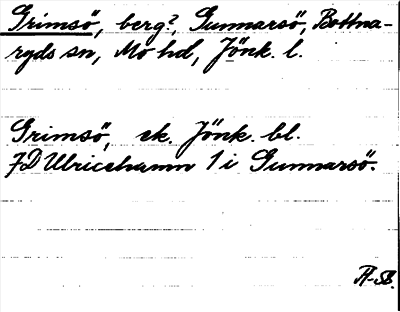 Grimsö, berg?, Gunnarsö, Bottna-
ryds sn, Mo hd, Jönk. l.
Grimsö, ek. Jönk. bl.
7D Ulricehamn 1 i Gunnarsö.